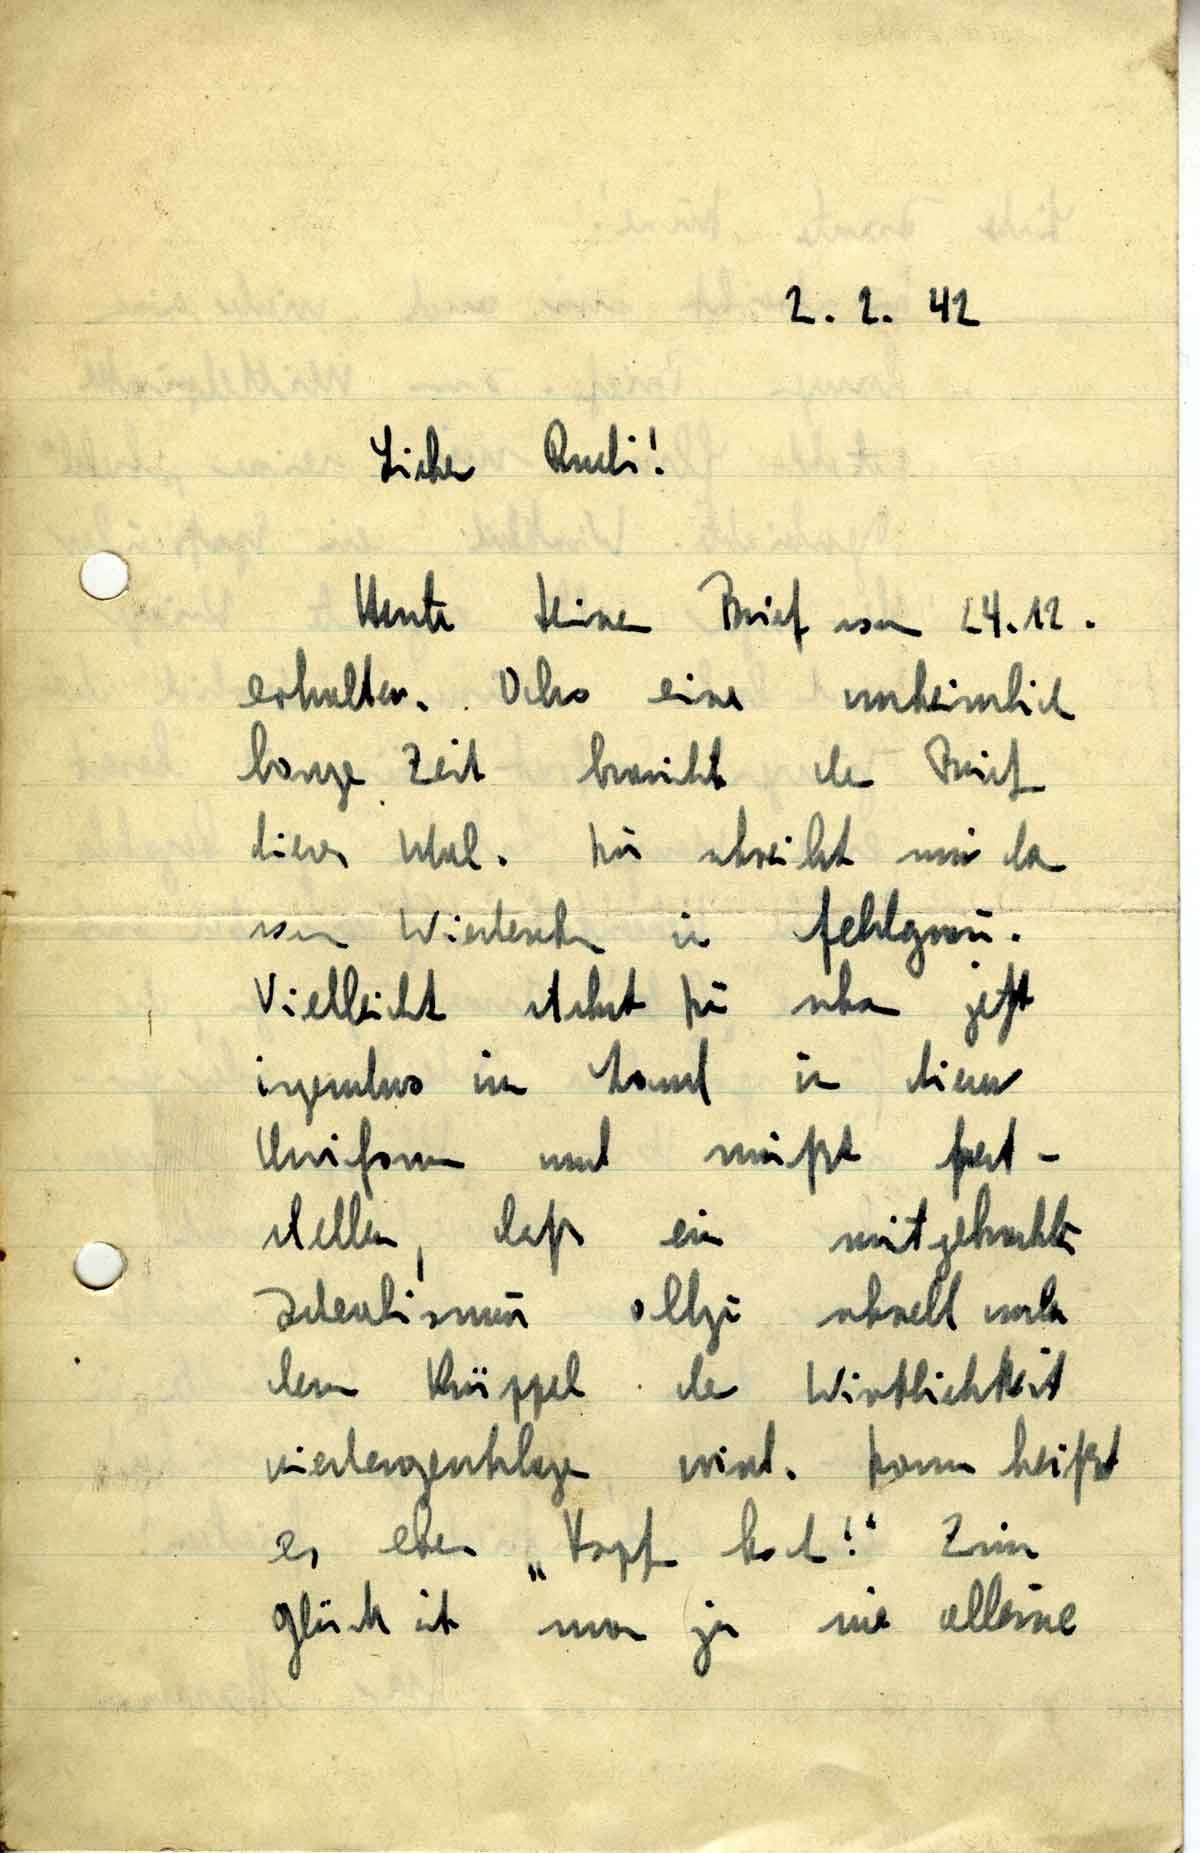 2. 2. 42
Lieber Rudi!
Heute Deinen Brief vom 24.12.
erhalten. Also eine unheimlich
lange Zeit braucht der Brief
dieses Mal. Du schreibst mir da
von Wiedersehn in feldgrau.
Vielleicht stehst Du schon jetzt
irgendwo im Land in dieser
Uniform und mußt fest-
stellen, daß ein mitgebrachter
Idealismus allzu schnell
dem Knüppel der Wirklichkeit
niedergeschlagen wird. Dann heißt
es eben „Kopf hoch!“ Zum
Glück ist man ja nie alleine